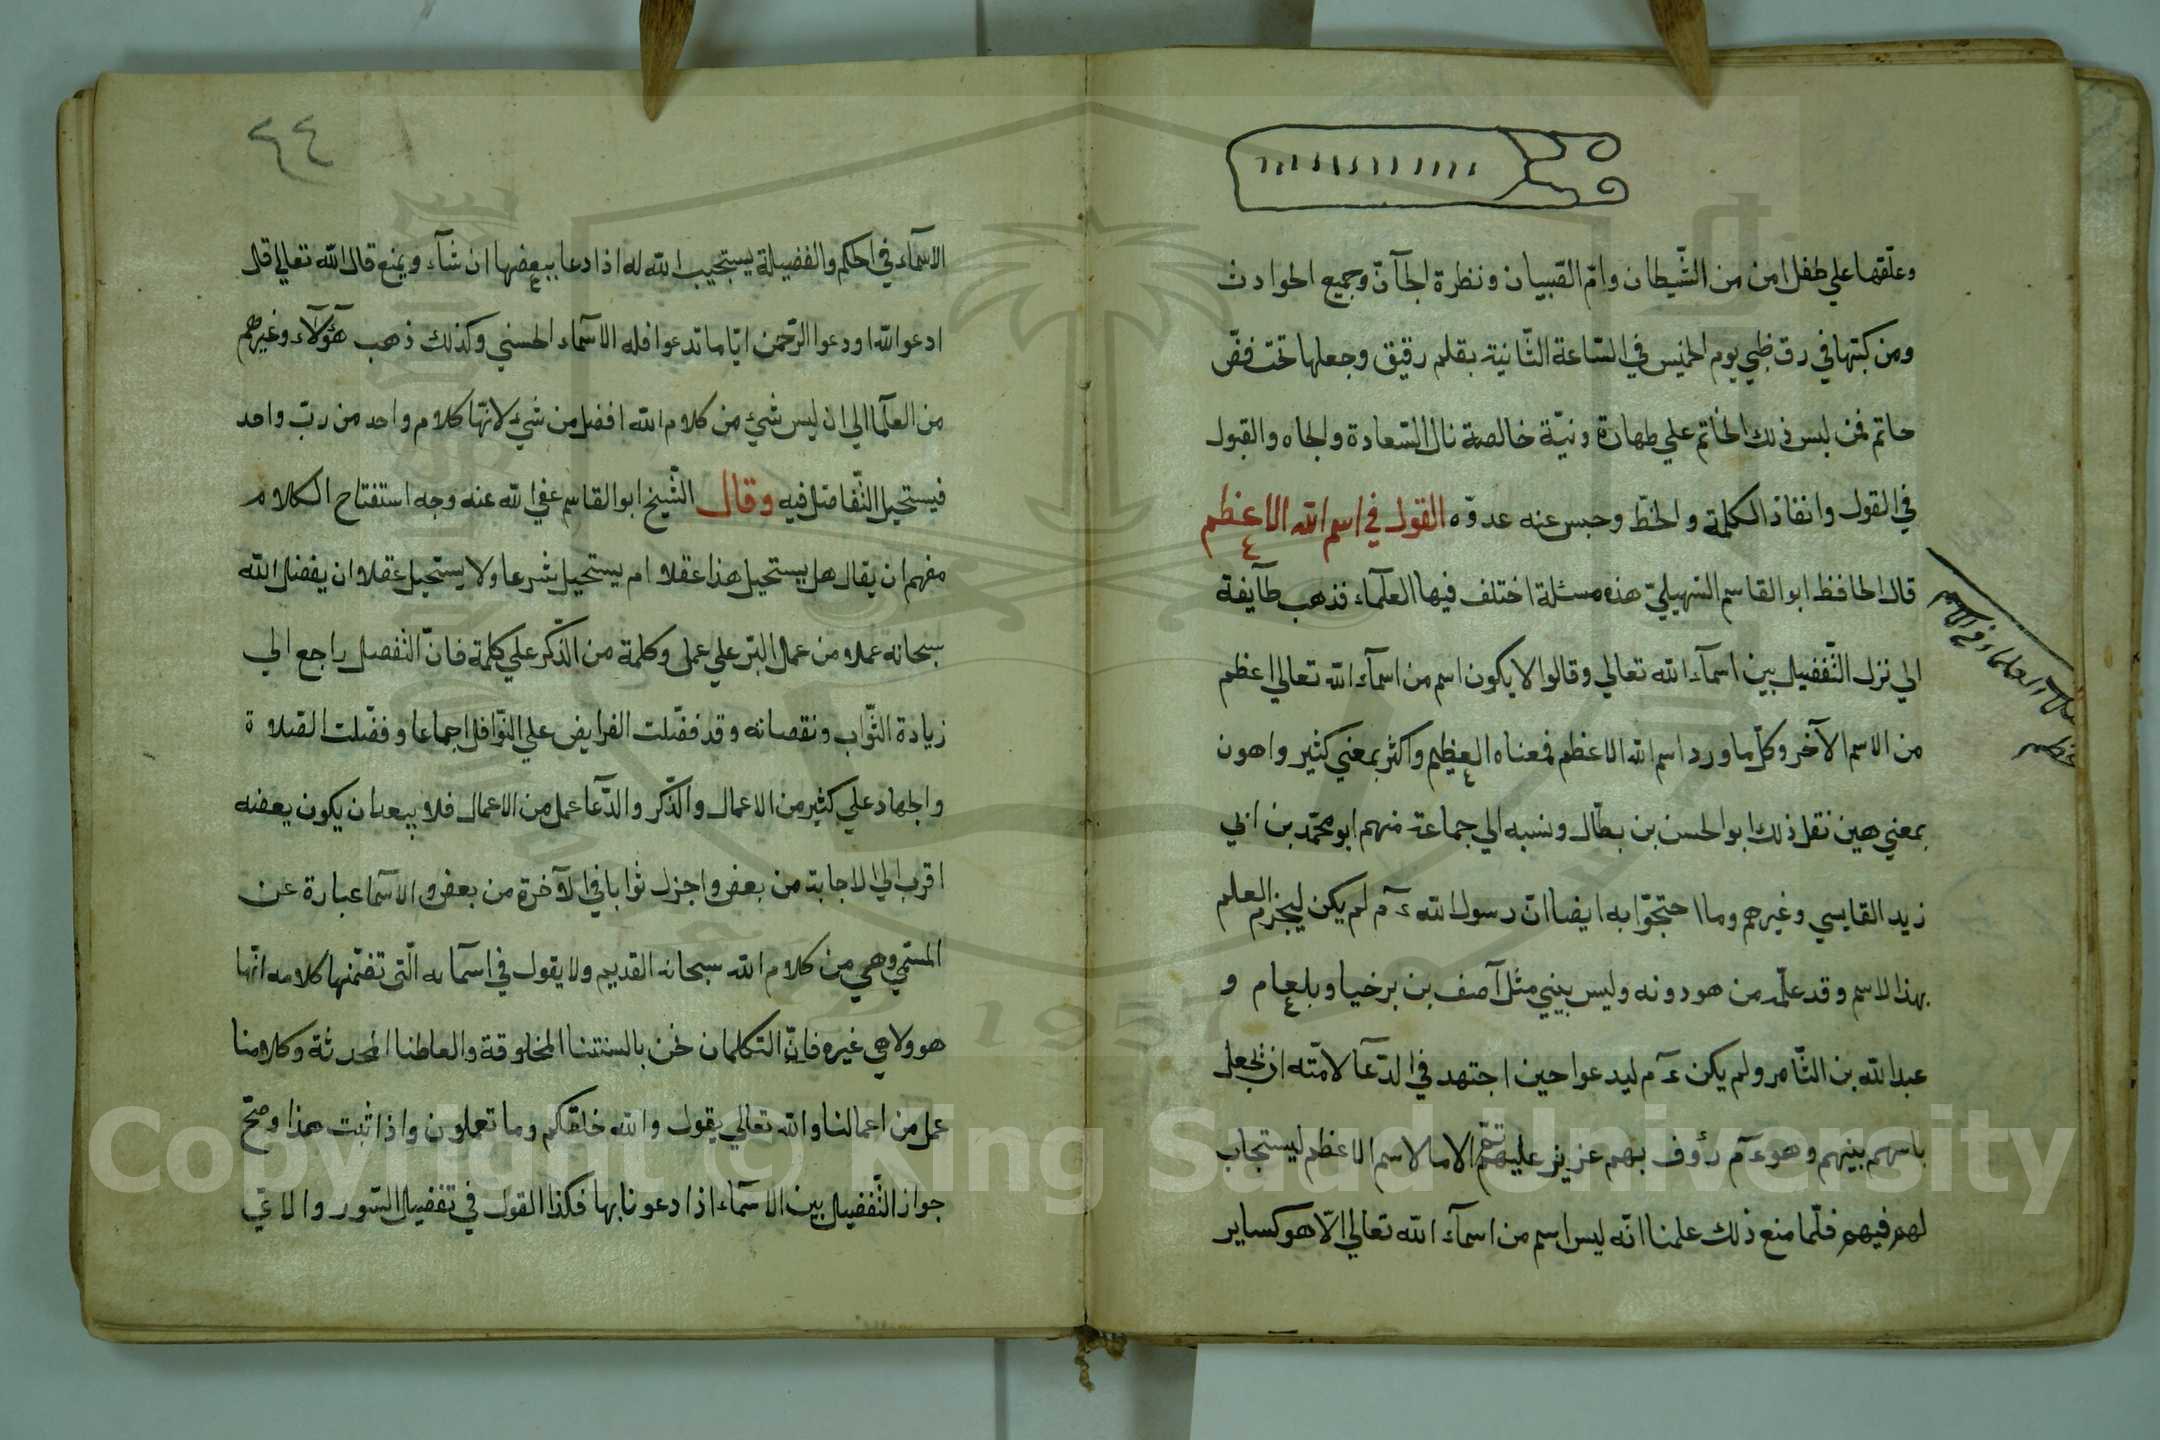 وعلّقها علي طفل امن من الشّيطان وامّ الصبيان ونظرة الجآنّ وجميع الحوادث
ومن كتبها في رق ظبي يوم الخميس في السّاعة الثّانية بقلم رقيق وجعلها تحت فصّ
خاتم فمن لبس ذلك الخاتم علي طهارة ونيّة خالصة نال السّعادة والجاه والقبول
في القول وانفاذ الكلمة والخطّ وحبس عنه عدوّه القول في اسم الله الاعظم
قال الحافظ ابو القاسم السّهيليّ هذه مسئلة اختلف فيها العلمآء فذهب طآيفة
الي نزل التّفضيل بين اسمآء الله تعالي وقالوا لا يكون اسم من اسمآء الله تعالي اعظم
من الاسم الآخر وكلّ ما ورد اسم الله الاعظم فمعناه العظيم واكثر بمعني كثير واهون
بمعني هين نقل ذلك ابو الحسن بن بطّال ونسبه الي جماعة منهم ابو محمّد بن ابي
زيد القابسي وغيرهم وما احتجّوا به ايضا انّ رسول الله ءم لم يكن ليحرم العلم
بهذا الاسم وقد علّمه من هو دونه وليس بنبي مثل آصف بن برخيا وبلعام و
عبد الله بن الثّامر ولم يكن ءم ليدعوا حين اجتهد في الدّعآ لامّته ان لا يجعل
باسهم بينهم وهو ءم رؤف بهم عزيز عليه عنتهم الا بالاسم الاعظم ليستجاب
لهم فيهم فلمّا منع ذلك علمنا انّه ليس اسم من اسمآء الله تعالي الّا هو كساير
العلماء في الاسم
٤٤
الاسمآء في الحكم والفضيلة يستجيب الله له اذا دعا ببعضها ان شآء ويمنع قال الله تعالي قل
ادعوا الله او دعوا الرّحمن ايّا ما تدعوا فله الاسمآء الحسني وكذلك ذهب هؤلآء وغيرهم
من العلمآ الي ان ليس شيئ من كلام الله افضل من شيئ لانّها كلام واحد من ربّ واحد
فيستحيل التّفاضل فيه وقال الشّيخ ابو القاسم عفي الله عنه وجه استفتاح الكلام
مفهم ان يقال هل يستحيل هذا عقلا ام يستحيل شرعا ولا يستحيل عقلا ان يفضل الله
سبحانه عملا من عمال البّر علي عمل وكلمة من الذّكر علي كلمة فانّ التفضيل راجع الي
زيادة الثّواب ونقصانه وقد فضّلت الفرايض علي النّوافل اجماعا وفضّلت الصّلاة
والجهاد علي كثير من الاعمال والذّكر والدّعا عمل من الاعمال فلا يبعد ان يكون بعضه
اقرب الي الاجابة من بعض واجزل ثوابا في الآخرة من بعض والاسما عبارة عن
المسمّي وهي من كلام الله سبحانه القديم ولا يقول في اسمآيه الّتي تضمّنها كلامه انّها
هو ولا هي غيره فان التكلمان نحن بالسنتنا المخلوقة والفاظنا المحدثة وكلامنا
عمل من اعمالنا والله تعالي يقول والله خلقكم وما تعملون واذا ثبت هذا وصحّ
جواز التّفضيل بين الاسمآء اذا دعونا بها فكذا القول في تفضيل السّور والاي
Copyright © King Saud University
1957